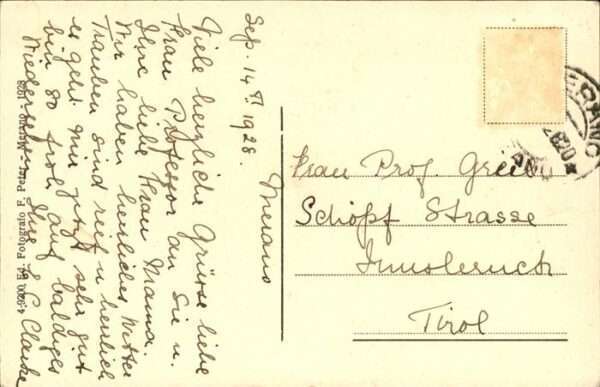 Sep. 14th 1928. Merano
Viele herzliche Grüsse liebe
Frau Professor an Sie u.
Ihre liebe Frau Mama.
Wir haben herrliches Wetter
Trauben sind reif u herrlich
es geht mir jetzt sehr gut
bin so froh auf baldiges
Wiedersehen Ihre C. Claire
Fotografo F. Peter - Merano - 1928
Frau Prof.
Schöpf Strasse
Innsbruck
Tirol